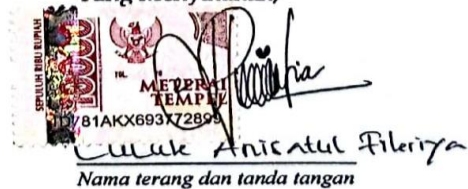 Yang Menyatakan,
SEPULUH RIBU RUPIAH
TGL.
METERAI
TEMPEL
81AKX693772899
Luluk Anisatul Fikriya
Nama terang dan tanda tangan